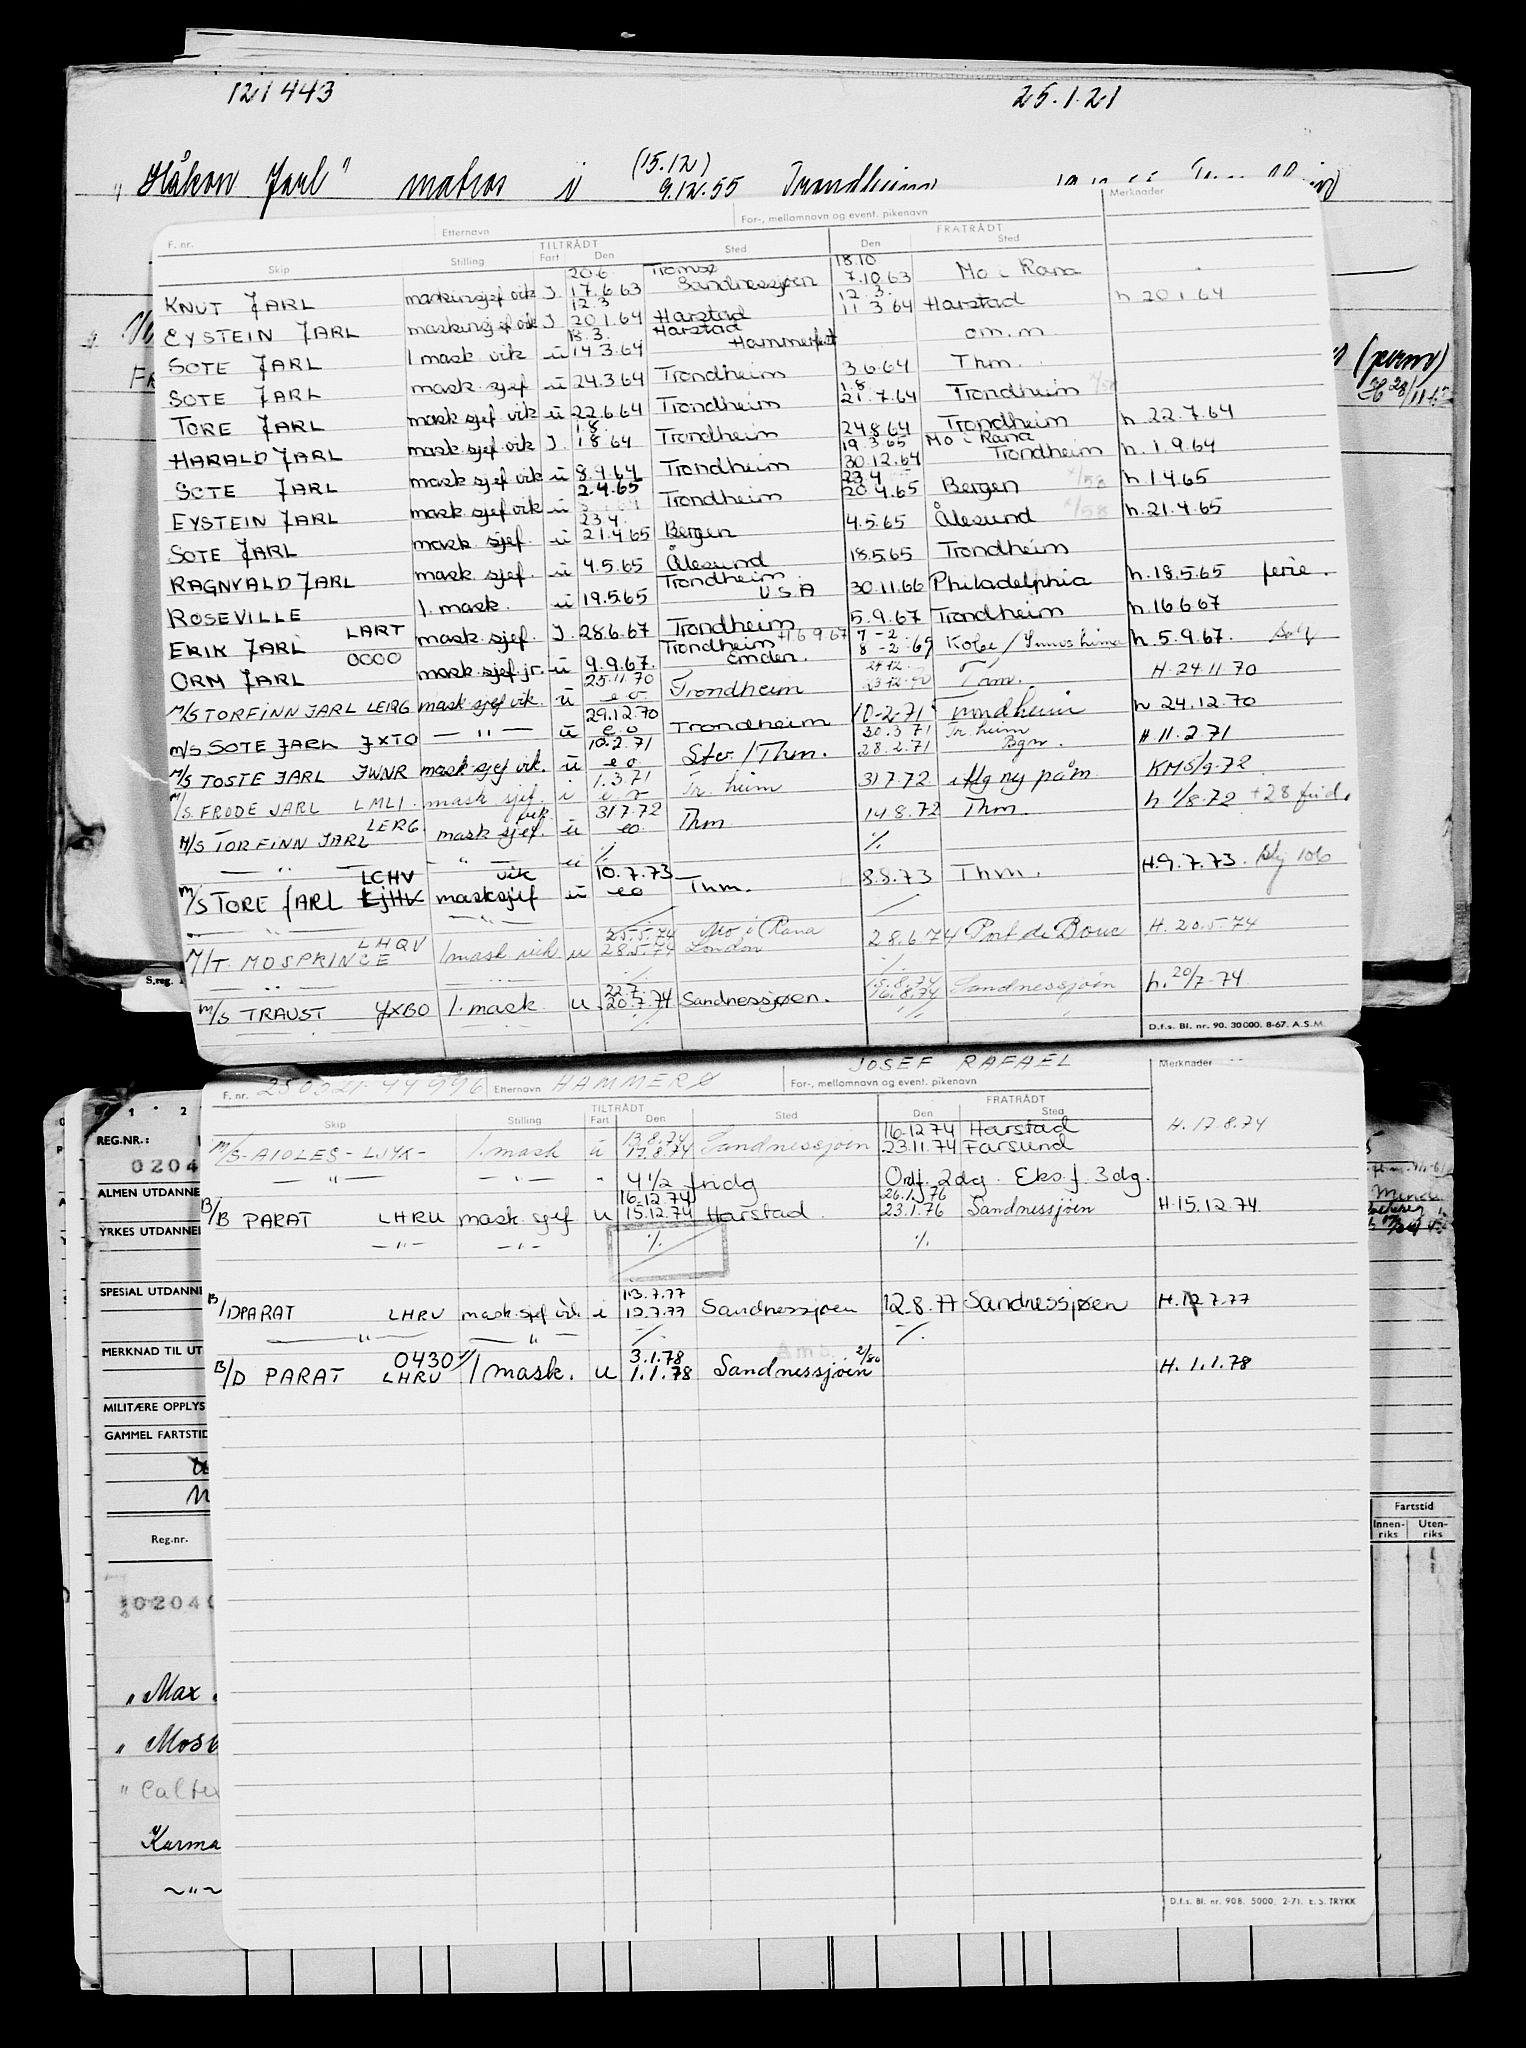 121443 25.1.21
"Håkon Jarl" matros u (15.12) 9.12.55 Trondheim
(perm)
F. nr. Etternavn For-, mellomnavn og event. pikenavn Merknader
TILTRÅDT FRATRÅDT
Skip Stilling Fart Den Sted Den Sted
20.6 Tromsø 18.10
KNUT JARL maskinsjef vik J. 17.6.63 Sandnessjøen 7.10.63 Mo i Rana
12.3 12.3.
EYSTEIN JARL maskinsjef vik J 20.1.64 Harstad 11.3.64 Harstad h. 20.1.64
13.3. Harstad
SOTE JARL 1 mask vik u 14.3.64 Hammerfest om.m
SOTE JARL mask sjef u 24.3.64 Trondheim 3.6.64 Thm.
1.8
TORE JARL mask sjef vik u 22.6.64 Trondheim 21.7.64 Trondheim
1.8.
HARALD JARL mask sjef vik J. 1.8.64 Trondheim 24.8.64 Trondheim h. 22.7.64
19.3.65 Mo i Rana
SOTE JARL mask sjef vik u 8.9.64 Trondheim 30.12.64 Trondheim h. 1.9.64
2.4.65 23.4
EYSTEIN JARL mask sjef vik u Trondheim 20.4.65 Bergen h. 1.4.65
23.4.
SOTE JARL mask sjef. u 21.4.65 Bergen 4.5.65 Ålesund h. 21.4.65
RAGNVALD JARL mask sjef. u 4.5.65 Ålesund 18.5.65 Trondheim
Trondheim
ROSEVILLE 1. mask. u 19.5.65 USA 30.11.66 Philadelphia h. 18.5.65 ferie.
ERIK JARL LART mask sjef. J. 28.6.67 Trondheim 5.9.67 Trondheim h. 16.6.67
Trondheim 7-2
ORM JARL 0000 mask sjef jr. u 9.9.67. Emden. 8-2-69 Kobe / h. 5.9.67.
25.11.70
M/S TORFINN JARL LERG mask sjef vik. u eo Trondheim Thm. H. 24.11.70
29.12.70
M/S SOTE JARL JXTO — " — u eo Trondheim 10-2-71 Trondheim h 24.12.70
10.2.71 20.3.71 Tr.heim
M/S TOSTE JARL JWNR mask sjef vik. u eo Stv / Thm. 28.2.71 Bgn. H. 11.2.71
1.3.71
M/S. FRODE JARL LMLI. mask sjef. i Tr. heim 31.7.72 ny påm KM 5/9-72
vik 31.7.72
M/S TORFINN JARL LERG mask sjef. u eo. Thm 14.8.72 Thm. h 1/8.72 +28 frid.
— " — " vik u ٪ ٪
M/S TORE JARL LCHV LJHV masksjef u 10.7.73 eo Thm. 8.8.73 Thm. H. 9.7.73.
— " — — " —
25.5.74 Mo i Rana
M/T. MOSPRINCE LHQV 1 mask vik u 28.5.74 London 28.6.74 Port de Bouc H. 20.5.74
22.7. 15.8.74
M/S TRAUST JXBO 1. mask u 20.7.74 Sandnessjøen. 16.8.74 Sandnessjøen h. 20/7-74
D.f.s. Bl. nr. 90. 30000. 8-67. A.S.M.
S.reg. 1
F. nr. 250321 44996 Etternavn HAMMERØ For-, mellomnavn og event. pikenavn JOSEF RAFAEL Merknader
TILTRÅDT FRATRÅDT
Skip Stilling Fart Den Sted Den Sted
13.8.74 16.12.74 Harstad
M/S - AIOLES - LJYK - 1. mask u 17.8.74 Sandnessjøen 23.11.74 Farsund H. 17.8.74
— " — — " — " 4 1/2 fridg Ordf. 2dg. Eks f. 3dg.
16.12.74 26.1.76
B/B PARAT LHRU mask sjef u 15.12.74 Harstad. 23.1.76 Sandnessjøen H. 15.12.74
— " — — " — ٪ ٪
13.7.77
B/D PARAT LHRU mask.sjef vik. i 12.7.77 Sandnessjøen 12.8.77 Sandnessjøen H. 12.7.77
— " — — " — ٪ ٪
Amb. 2/80
B/D PARAT 0430 LHRU 1 mask. u 3.1.78 1.1.78 Sandnessjøen H. 1.1.78
D.f.s. Bl. nr. 90B. 5000. 2-71. E.S. TRYKK
REG.NR.:
0204
ALMEN UTDANNE
YRKES UTDANNEL
SPESIAL UTDANNE
MERKNAD TIL UT
MILITÆRE OPPLYS
GAMMEL FARTSTID
Reg.nr.
Fartstid
Innen-riks Uten-riks
10204
"Max
"Mos
"Calte
Karma
~"~